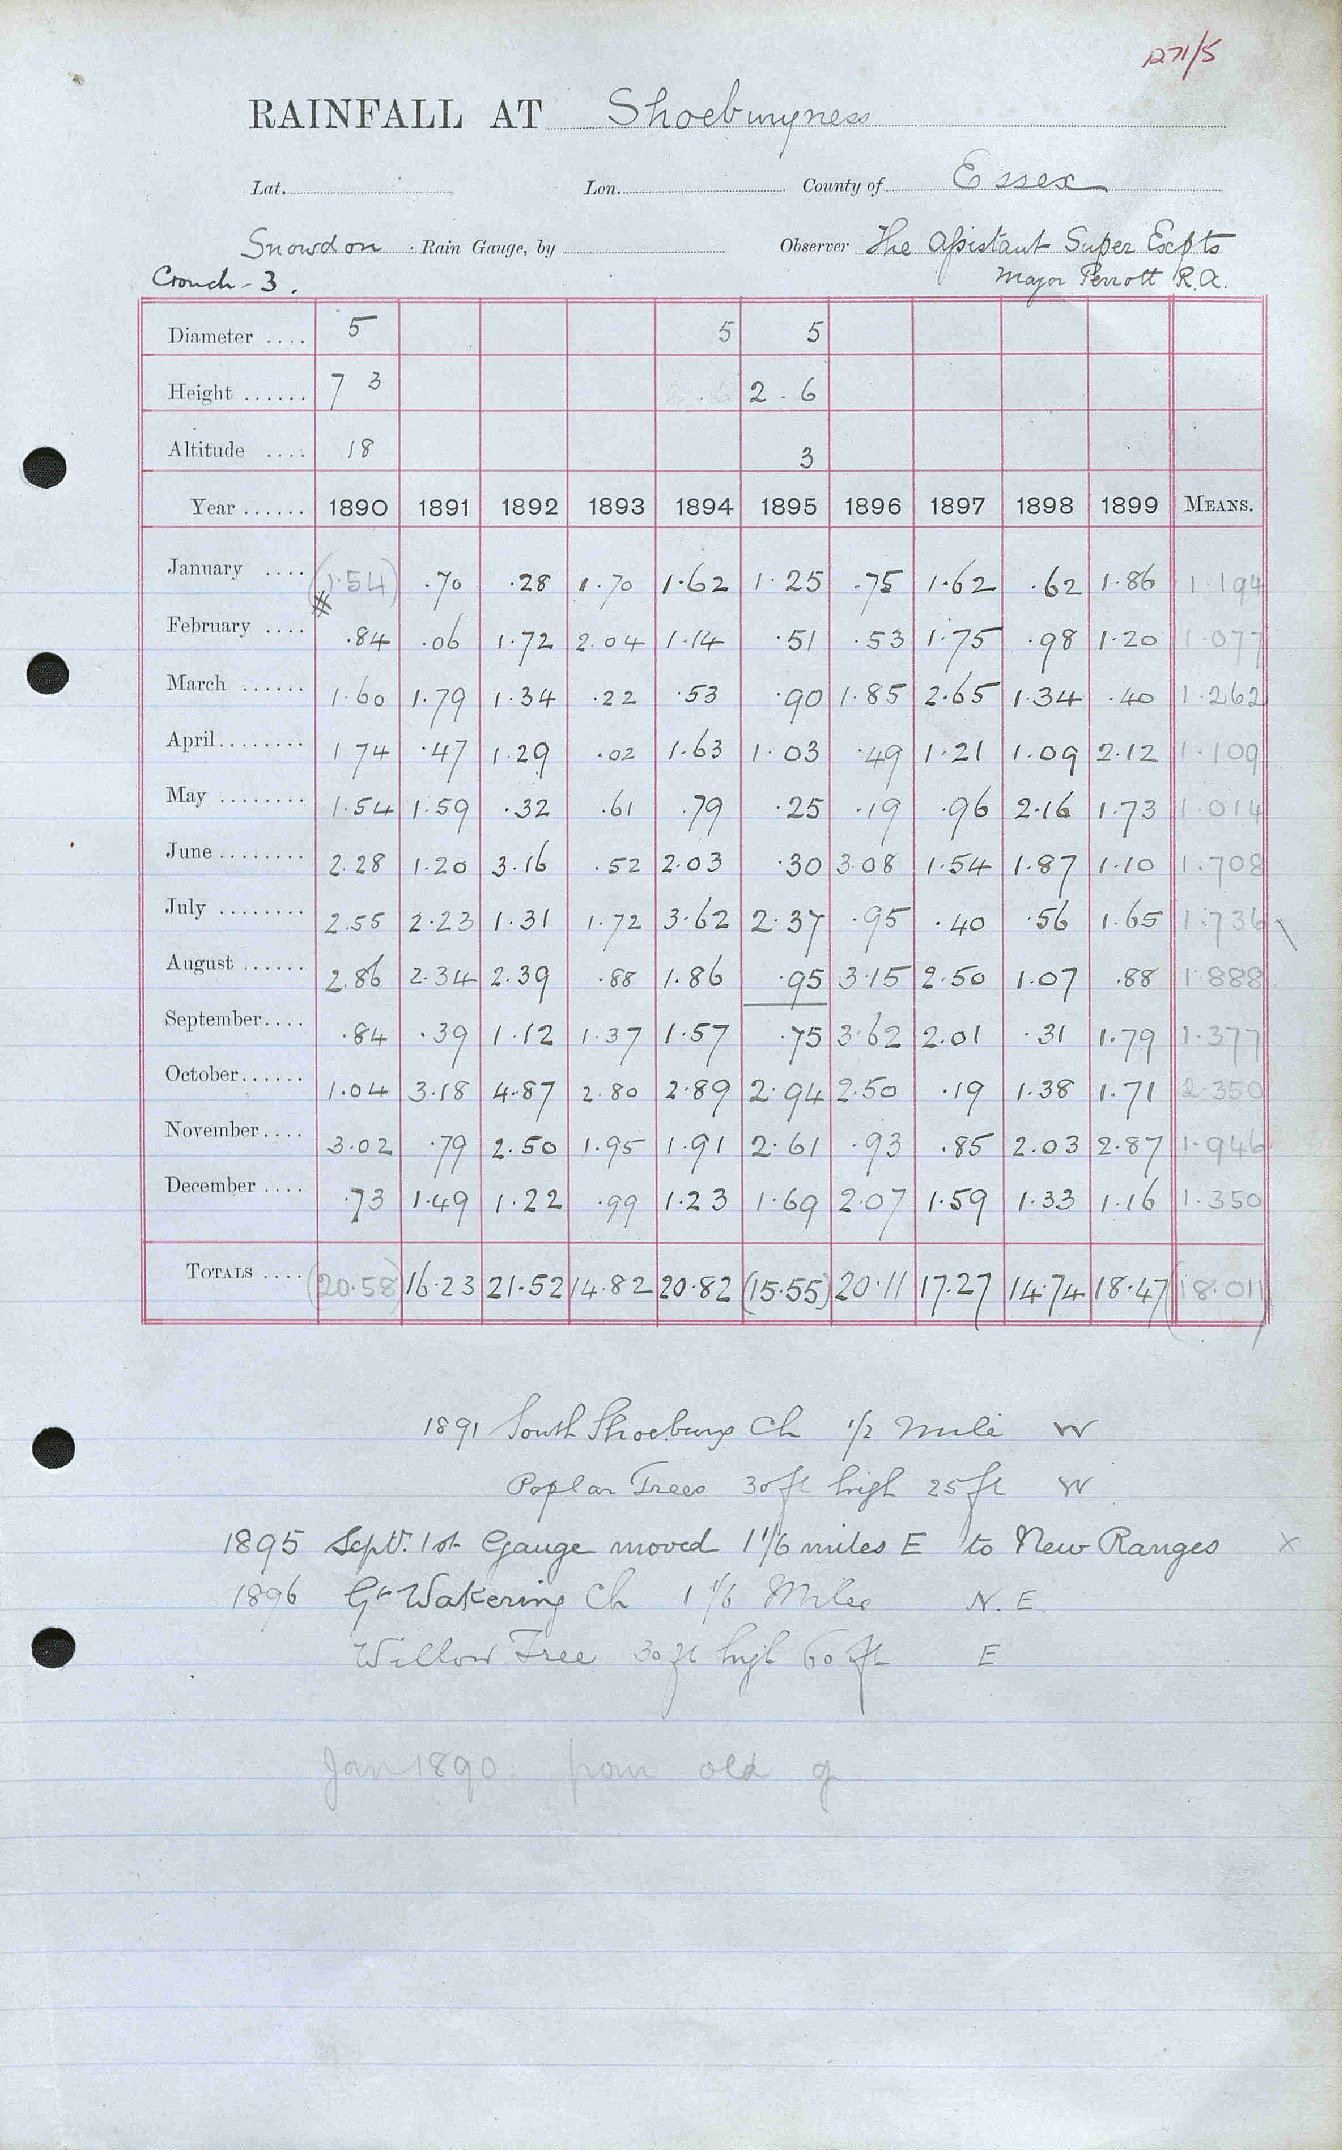 1271/5
RAINFALL AT Shoeburyness
Lat. Lon. County of Essex
Snowdon Rain Gauge, by Observer The Assistant Super Expts
Crouch - 3. Major Perrott R.A.
Diameter .... 5 5 5
Height ...... 7 3 2 - 6
Altitude .... 18 3
Year ...... 1890 1891 1892 1893 1894 1895 1896 1897 1898 1899 MEANS.
January .... (1.54) .70 .28 1.70 1.62 1.25 .75 1.62 .62 1.86 1.194
February .... .84 .06 1.72 2.04 1.14 .51 .53 1.75 .98 1.20 1.077
March ...... 1.60 1.79 1.34 .22 .53 .90 1.85 2.65 1.34 .40 1.262
April........ 1.74 .47 1.29 .02 1.63 1.03 .49 1.21 1.09 2.12 1.109
May ........ 1.54 1.59 .32 .61 .79 .25 .19 .96 2.16 1.73 1.014
June ........ 2.28 1.20 3.16 .52 2.03 .30 3.08 1.54 1.87 1.10 1.708
July ........ 2.55 2.23 1.31 1.72 3.62 2.37 .95 .40 .56 1.65 1.736
August ...... 2.86 2.34 2.39 .88 1.86 .95 3.15 2.50 1.07 .88 1.888
September.... .84 .39 1.12 1.37 1.57 .75 3.62 2.01 .31 1.79 1.377
October...... 1.04 3.18 4.87 2.80 2.89 2.94 2.50 .19 1.38 1.71 2.350
November.... 3.02 .79 2.50 1.95 1.91 2.61 .93 .85 2.03 2.87 1.946
December .... .73 1.49 1.22 .99 1.23 1.69 2.07 1.59 1.33 1.16 1.350
TOTALS .... (20.58) 16.23 21.52 14.82 20.82 (15.55) 20.11 17.27 14.74 18.47 (18.011)
1891 South Shoebury Ch 1/2 mile W
Poplar Trees 30 ft high 25 ft W
1895 Sept. 1st Gauge moved 1 1/6 miles E to New Ranges x
1896 Gt Wakering Ch 1 1/6 Miles N.E.
Willow Tree 30 ft high 60 ft E
Jan 1890: from old g